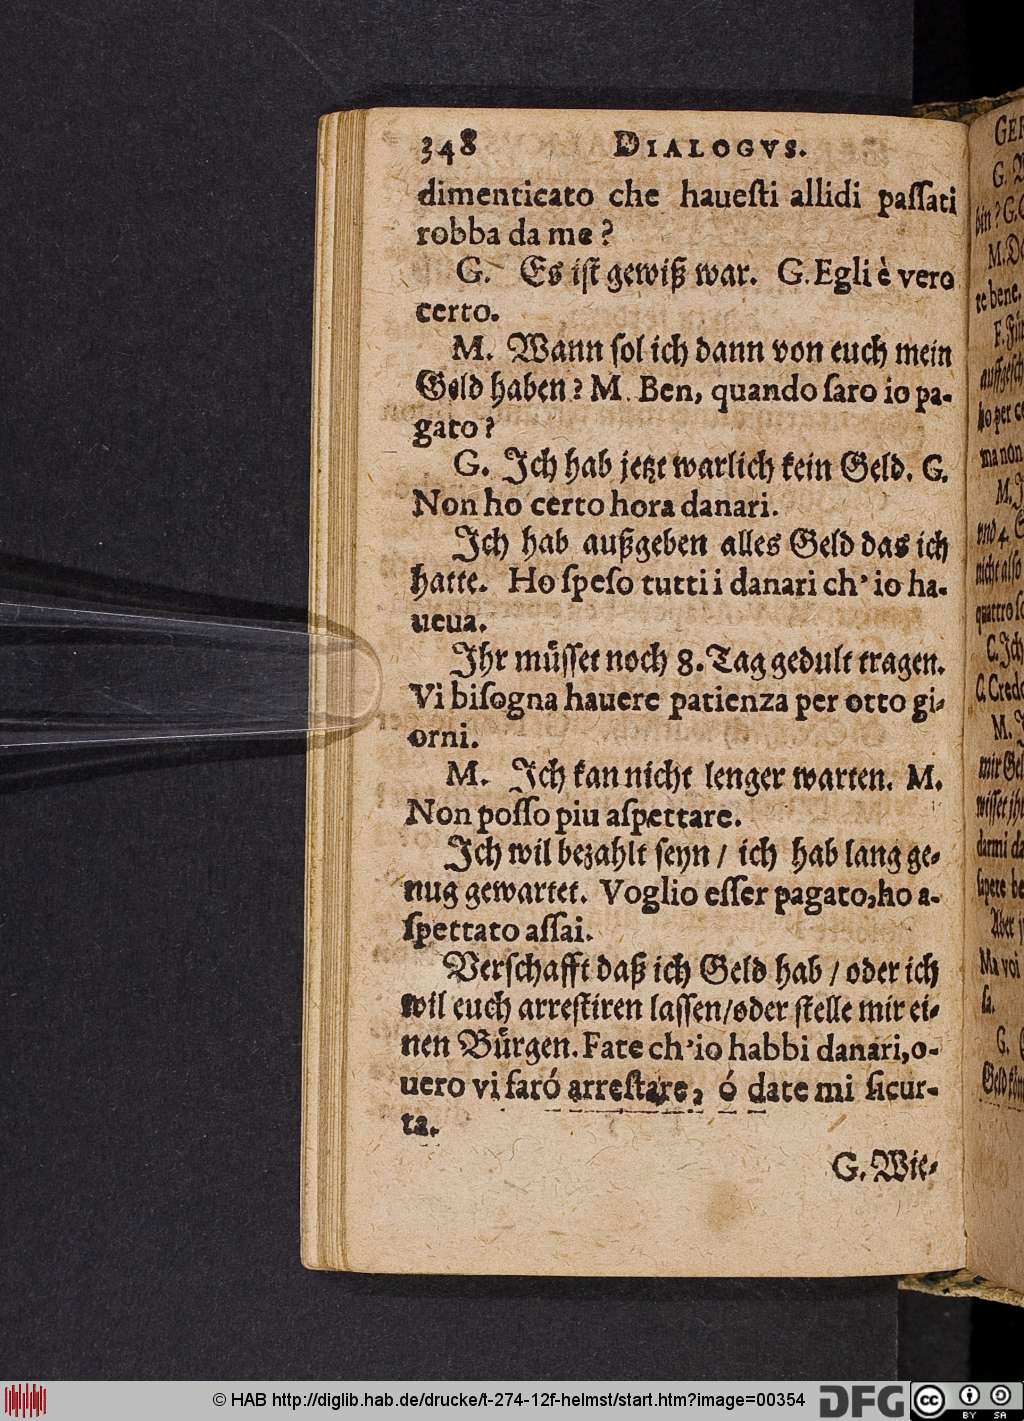 348 DIALOGVS.
dimenticato che hauesti allidi passati
robba da me?
G. Es ist gewiß war. G. Egli è vero
certo.
M. Wann sol ich dann von euch mein
Geld haben? M. Ben, quando saro io pa-
gato?
G. Ich hab jetzt warlich kein Geld. G.
Non ho certo hora danari.
Ich hab außgeben alles Geld das ich
hatte. Ho speso tutti i danari ch'io ha-
ueua.
Ihr müsset noch 8. Tag gedult tragen.
Vi bisogna hauere patienza per otto gi-
orni.
M. Ich kan nicht lenger warten. M.
Non posso piu aspettare.
Ich wil bezahlt seyn / ich hab lang ge-
nug gewartet. Voglio esser pagato, ho a-
spettato assai.
Verschafft daß ich Geld hab / oder ich
wil euch arrestiren lassen/oder stelle mir ei-
nen Bürgen. Fate ch'io habbi danari, o-
uero vi faró arrestare, ó date mi sicur-
ta.
G. Wie-
GER
G.
bin? G.
M.
te bene.
F. Für
auffgesch
ho per ce
ma non
M.
vnd 4.
nicht also
quattro sc
C. Ich
C. Credo
M.
mir Gel
wisset ihr
darmi da
sapere be
Aber
Ma voi
si.
G.
Geld
© HAB http://diglib.hab.de/drucke/t-274-12f-helmst/start.htm?image=00354
DFG
cc BY SA